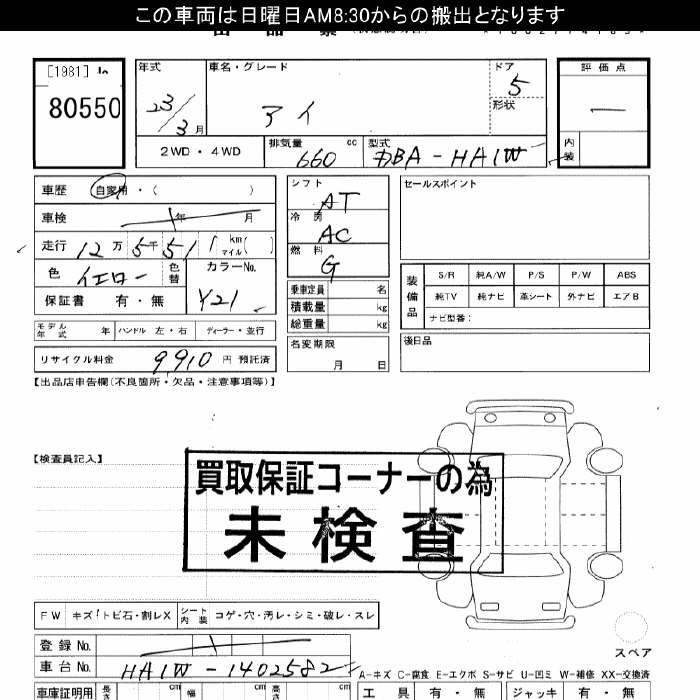 この車両は日曜日AM8:30からの搬出となります
[1981]
80550
年式
23/3月
車名・グレード
アイ
ドア
5
形状
評価点
内装
2WD・4WD
排気量
660 cc
型式
DBA-HA1W
車歴 自家用・( )
車検 年 月
走行 12万5千51 km マイル( )
色 イエロー 色替
カラーNo.
Y21
保証書 有・無
モデル年式 年 ハンドル 左・右 ディーラー・並行
リサイクル料金 9910 円 預託済
シフト
AT
冷房
AC
燃料
G
乗車定員 名
積載量 kg
総重量 kg
名変期限
月 日
セールスポイント
装備品
S/R 純A/W P/S P/W ABS
純TV 純ナビ 革シート 外ナビ エアB
ナビ型番:
後日品
【出品店申告欄(不良箇所・欠品・注意事項等)】
【検査員記入】
買取保証コーナーの為
未検査
FW キズ!トビ石・割レX シート内装 コゲ・穴・汚レ・シミ・破レ・スレ
登録No.
車台No. HA1W-1402582
スペア
A-キズ C-腐食 E-エクボ S-サビ U-凹ミ W-補修 XX-交換済
車庫証明用 長さ cm 幅 cm 高さ cm
工具 有・無 ジャッキ 有・無